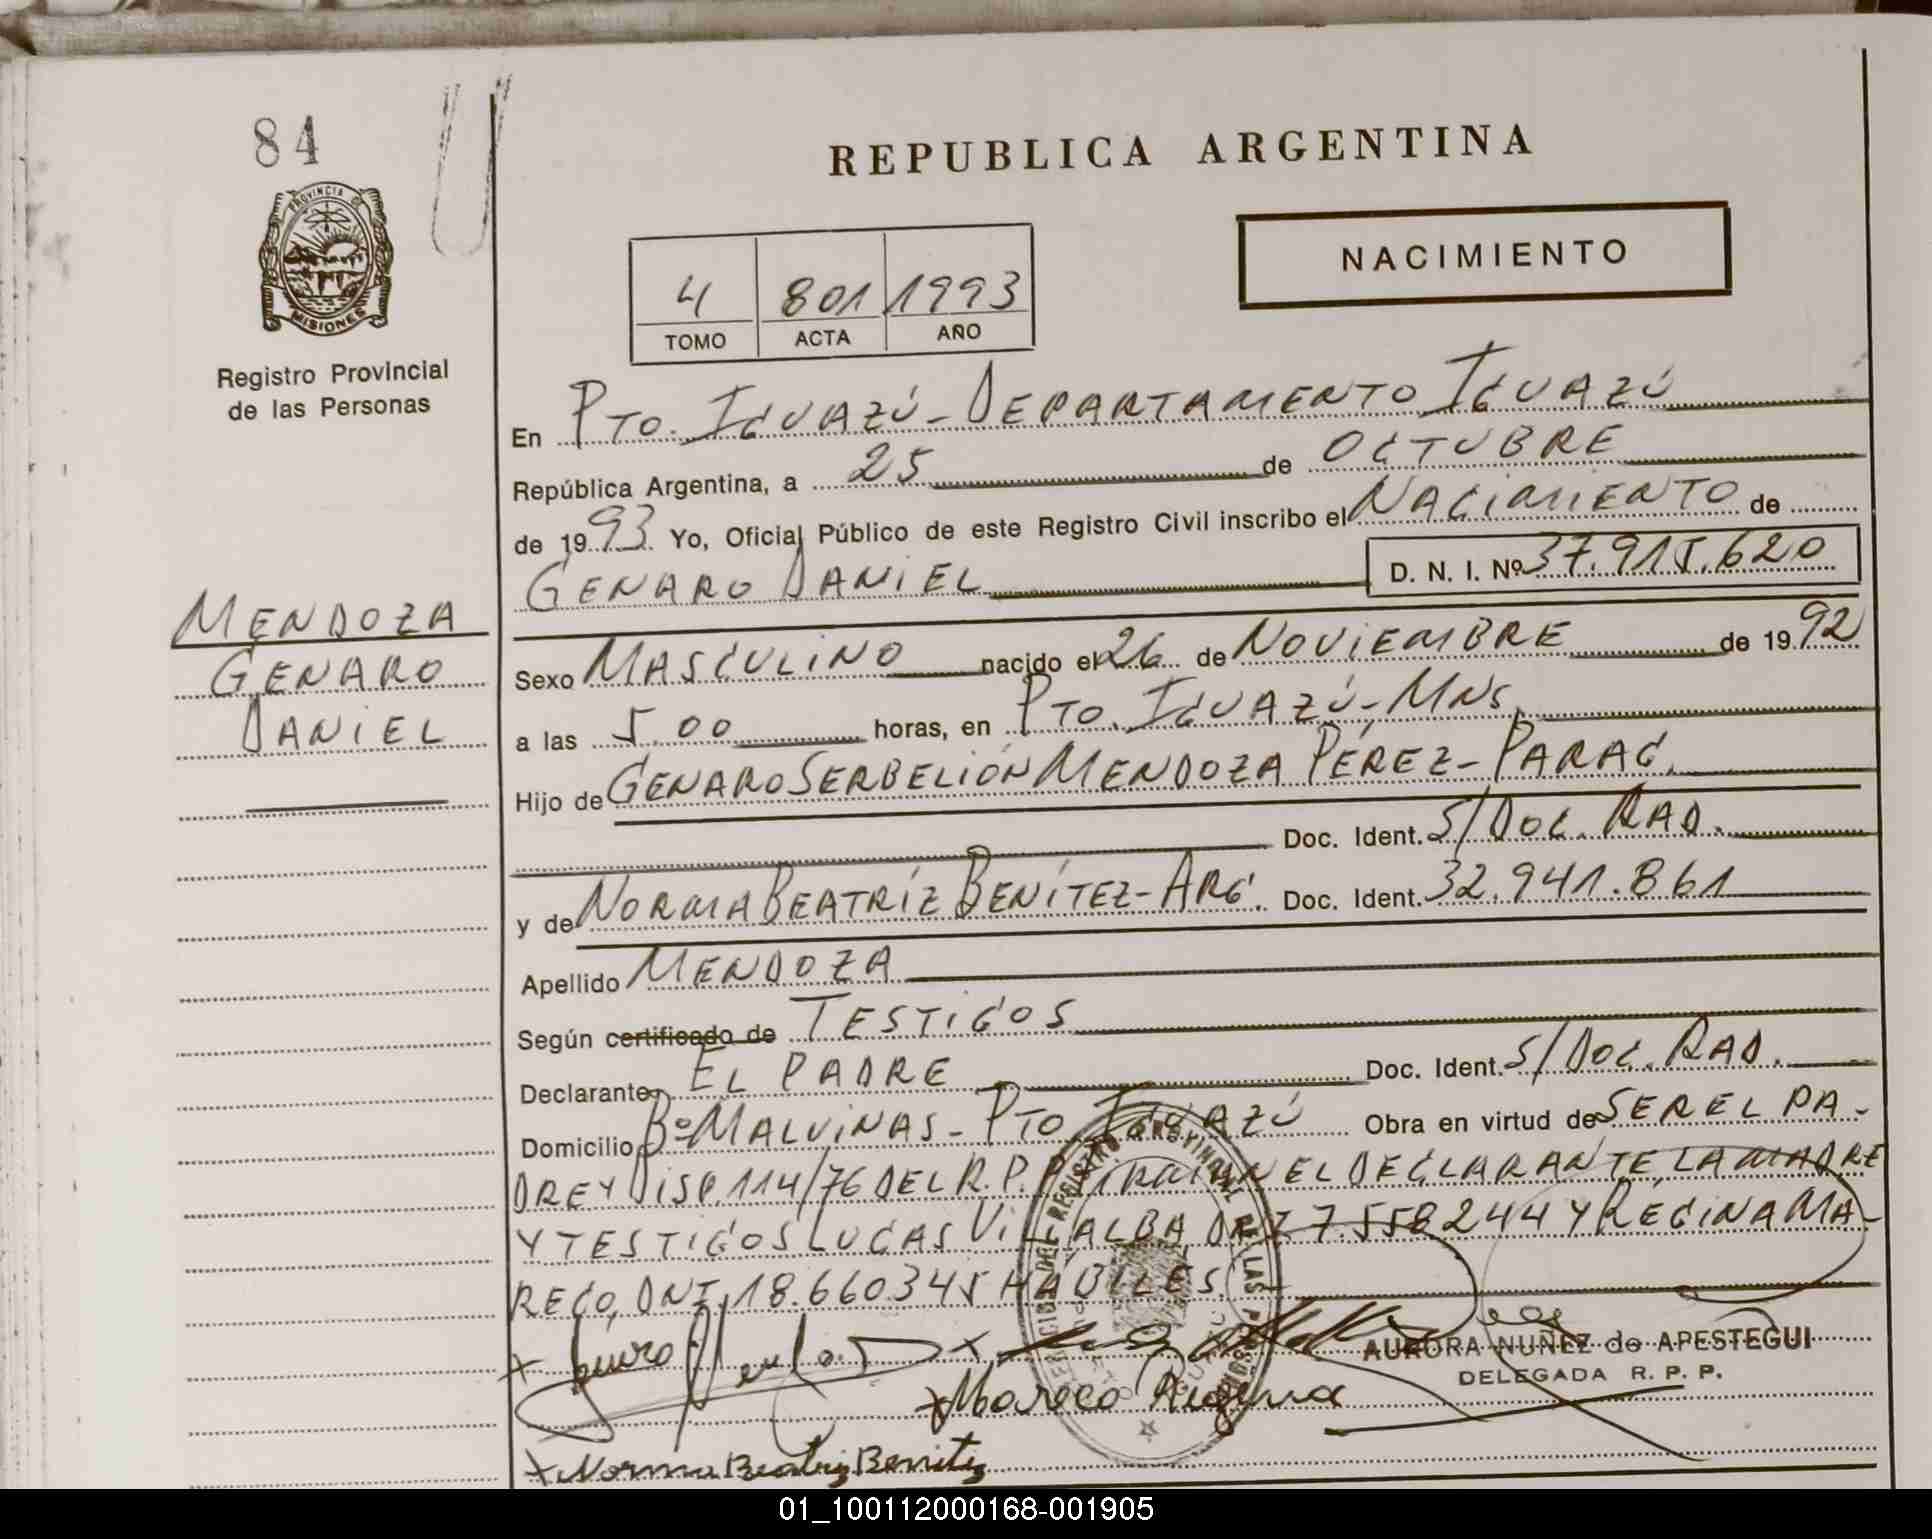 84
REPUBLICA ARGENTINA
PROVINCIA DE
MISIONES
Registro Provincial
de las Personas
NACIMIENTO
4 801 1993
TOMO ACTA AÑO
En PTO. IGUAZÚ - DEPARTAMENTO IGUAZÚ
República Argentina, a 25 de OCTUBRE
de 1993 Yo, Oficial Público de este Registro Civil inscribo el NACIMIENTO de
GENARO DANIEL D. N. I. Nº 37.915.620
MENDOZA
GENARO
DANIEL
Sexo MASCULINO nacido el 26 de NOVIEMBRE de 1992
a las 5.00 horas, en PTO. IGUAZÚ - MNS.
Hijo de GENARO SERBELIÓN MENDOZA PÉREZ - PARAG.
Doc. Ident. S/DOC. RAD.
y de NORMA BEATRÍZ BENÍTEZ - ARG. Doc. Ident. 32.941.861
Apellido MENDOZA
Según certificado de TESTIGOS
Declarante EL PADRE Doc. Ident. S/DOC. RAD.
Domicilio Bº MALVINAS - PTO. IGUAZÚ Obra en virtud de SER EL PA-
DRE Y DISP. 114/76 DEL R.P.P. FIRMAN EL DECLARANTE LA MADRE
Y TESTIGOS LUCAS VILLALBA 7.558.244 Y REGINA MA-
RECO, DNI 18.660.345 HÁBILES
AURORA NUÑEZ de APESTEGUI
DELEGADA R. P. P.
x Mareco Regina
x Norma Beatriz Benitez
01_100112000168-001905